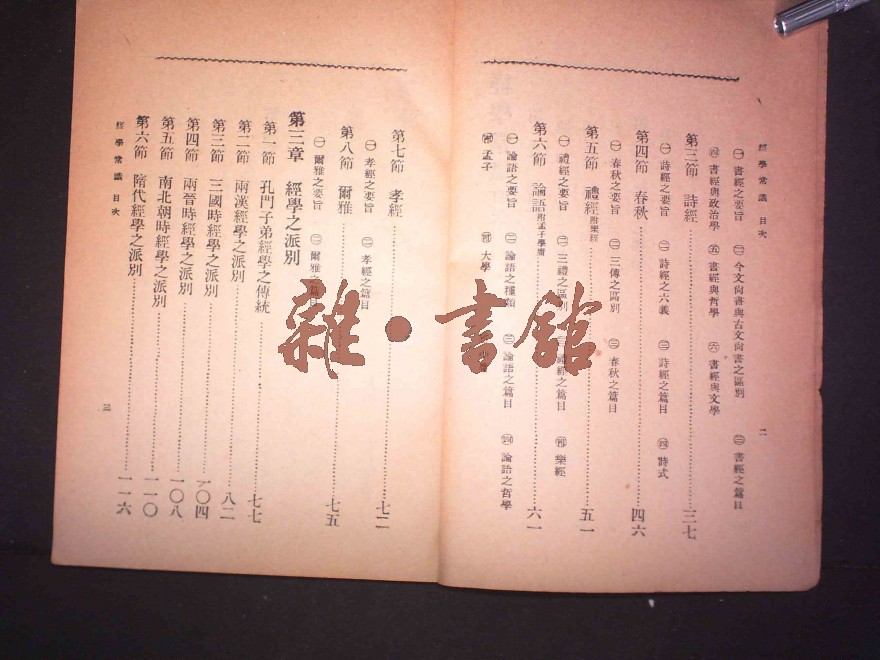 經學常識　目次
二
㊀書經之要旨　㊁今文尚書與古文尚書之區別　㊂書經之篇目
㊃書經與政治學　㊄書經與哲學　㊅書經與文學
第三節　詩經……三七
㊀詩經之要旨　㊁詩經之六義　㊂詩經之篇目　㊃詩式
第四節　春秋……四六
㊀春秋之要旨　㊁三傳之區別　㊂春秋之篇目
第五節　禮經附樂經……五一
㊀禮經之要旨　㊁三禮之區別　㊂禮經之篇目　附樂經
第六節　論語附孟子學庸……六一
㊀論語之要旨　㊁論語之種類　㊂論語之篇目　㊃論語之哲學
附孟子　附大學
第七節　孝經……七二
㊀孝經之要旨　㊁孝經之篇目
第八節　爾雅……七五
㊀爾雅之要旨　㊁爾雅之篇目
第三章　經學之派別
第一節　孔門子弟經學之傳統……七七
第二節　兩漢經學之派別……八二
第三節　三國時經學之派別……一〇四
第四節　兩晉時經學之派別……一〇八
第五節　南北朝時經學之派別……一一〇
第六節　隋代經學之派別……一一六
經學常識　目次
三
雜・書館